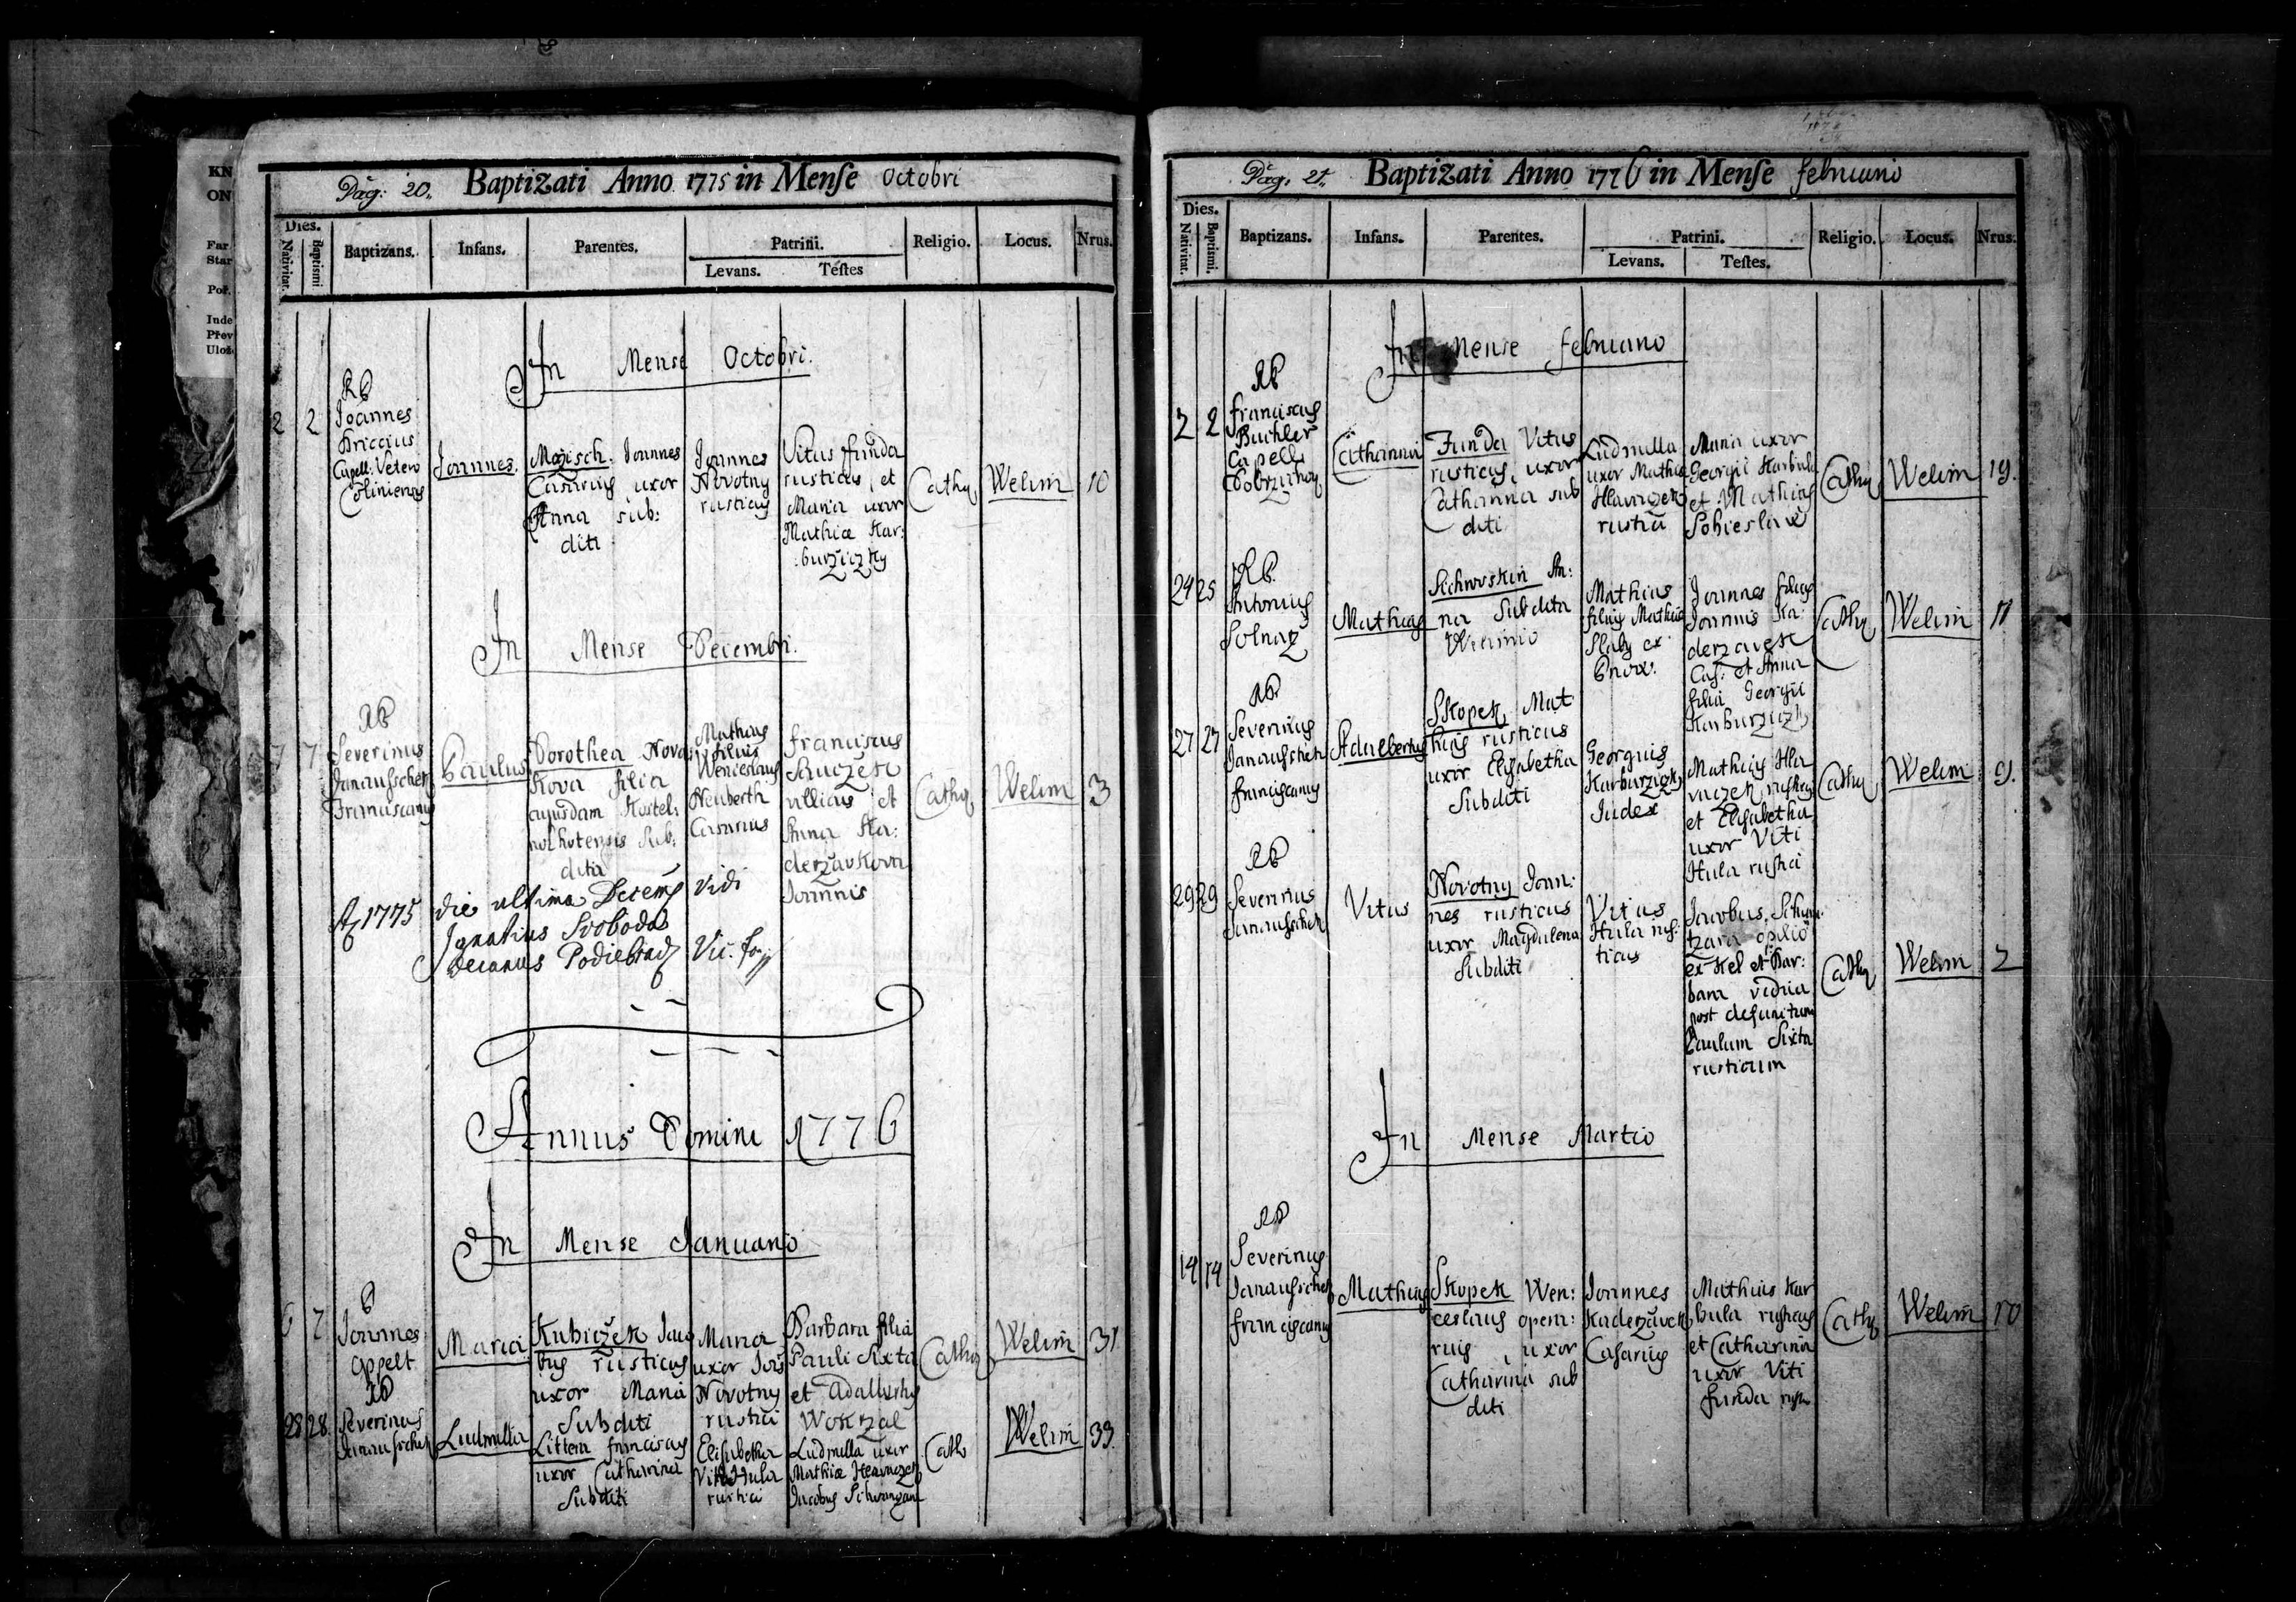 KN
ON
Far
Star
Poř.
Inde
Přev
Ulož
Pag: 20. Baptizati Anno 1775 in Menſe Octobri
Dies.
Nativitat.
Baptiſmi
Baptizans.
Infans.
Parentes.
Patrini.
Levans.
Teſtes
Religio.
Locus.
Nrus.
In Mense Octobri.
2
2
Joannes
Briccius
Capell: Vetero
Coliniensis
Joannes.
Joannes
Casarius uxor
Anna sub:
diti
Joannes
Novotny
rusticus
Vitus Funda
rusticus et
Maria uxor
Mathiæ Kar:
burziczky
Cathq
Welim
10
In Mense Decembri.
7
7
Severinus
Janauschek
Franciscang
Paulus
Dorothea Nova
kova filia
cujusdam Kostel:
Sub:
dita
Mathias
filius
Wenceslaus
Neuberth
Casarius
Franciscus
Sauczek
villicus et
Anna Ka:
derzavkova
Joannis
Cathq
Welim
3
1775 die ultima Decemb vidi
Ignatius Svoboda
Decanus Podiebrad Vic. for
Annus Domini 1776
In Mense Januario
6
7
Joannes
Appelt
Maria
Kubiczek Jaco
bus rusticus
uxor Maria
Subditi
Maria
uxor Jois
Novotny
rustici
Barbara filia
Pauli Sixta
et Adalbertus
Wokrzal
Cathq
Welim
31
28
28
Severinus
Janauschek
Ludmilla
Littera Franciscus
uxor Catharina
Subditi
Elisabetha
Viti Hula
rustici
Ludmilla uxor
Mathiæ Hlavaczek
Jacobus
Cath
Welim
33.
Pag. 21. Baptizati Anno 1776 in Menſe Februario
Dies.
Nativitat.
Baptiſmi.
Baptizans.
Infans.
Parentes.
Patrini.
Levans.
Teſtes.
Religio.
Locus.
Nrus.
In Mense Februario
2
2
Franciscus
Buchler
Capell:
Catharina
Funda Vitus
rusticus, uxor
Catharina sub
diti
Ludmilla
uxor Mathiæ
Hlavaczek
rustici
Maria uxor
Georgii Karbula
et Mathias
Sobieslaw
Cathq
Welim
19.
24
25
Antonius
Solnarz
Mathias
An:
na Subdita
Mathias
filius Mathiæ
Slaby ex
Joannes filius
Joannis Ka:
derzavek
Cas: et Anna
filia Georgii
Karburziczky
Cathq
Welim
11
27
27
Severinus
Janauschek
Franciscanus
Adalbertus
Skopek Mat
hias rusticus
uxor Elisabetha
Subditi
Georgius
Karburziczky
Judex
Mathias Hla
vaczek rusticus
et Elisabetha
uxor Viti
Hula rustici
Cathq
Welim
9.
29
29
Severinus
Janauschek
Vitus
Novotny Joan:
nes rusticus
uxor Magdalena
Subditi
Vitus
Hula rus:
ticus
Jacobus
opilio
ex Kel et Bar:
bara vidua
post defunctum
Paulum Sixta
rusticum
Cathq
Welim
2
In Mense Martio
14
14
Severinus
Janauschek
Franciscanus
Mathias
Skopek Wen:
ceslaus opera:
rius, uxor
Catharina sub
diti
Joannes
Kaderzavek
Casarius
Mathias Kar
bula rusticus
et Catharina
uxor Viti
Funda
Cathq
Welim
10